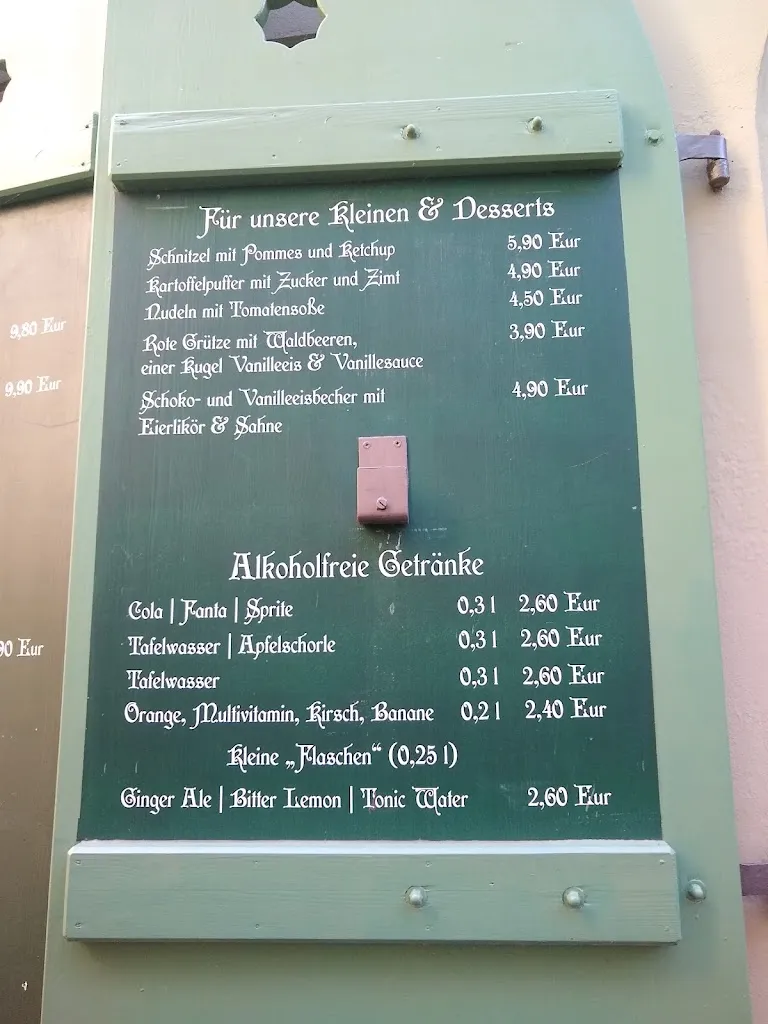 Für unsere Kleinen & Desserts
Schnitzel mit Pommes und Ketchup 5,90 Eur
Kartoffelpuffer mit Zucker und Zimt 4,90 Eur
Nudeln mit Tomatensoße 4,50 Eur
Rote Grütze mit Waldbeeren, 3,90 Eur
einer Kugel Vanilleeis & Vanillesauce
Schoko- und Vanilleeisbecher mit 4,90 Eur
Eierlikör & Sahne
Alkoholfreie Getränke
Cola | Fanta | Sprite 0,3 l 2,60 Eur
Tafelwasser | Apfelschorle 0,3 l 2,60 Eur
Tafelwasser 0,3 l 2,60 Eur
Orange, Multivitamin, Kirsch, Banane 0,2 l 2,40 Eur
Kleine „Flaschen“ (0,25 l)
Ginger Ale | Bitter Lemon | Tonic Water 2,60 Eur
9,80 Eur
9,90 Eur
90 Eur